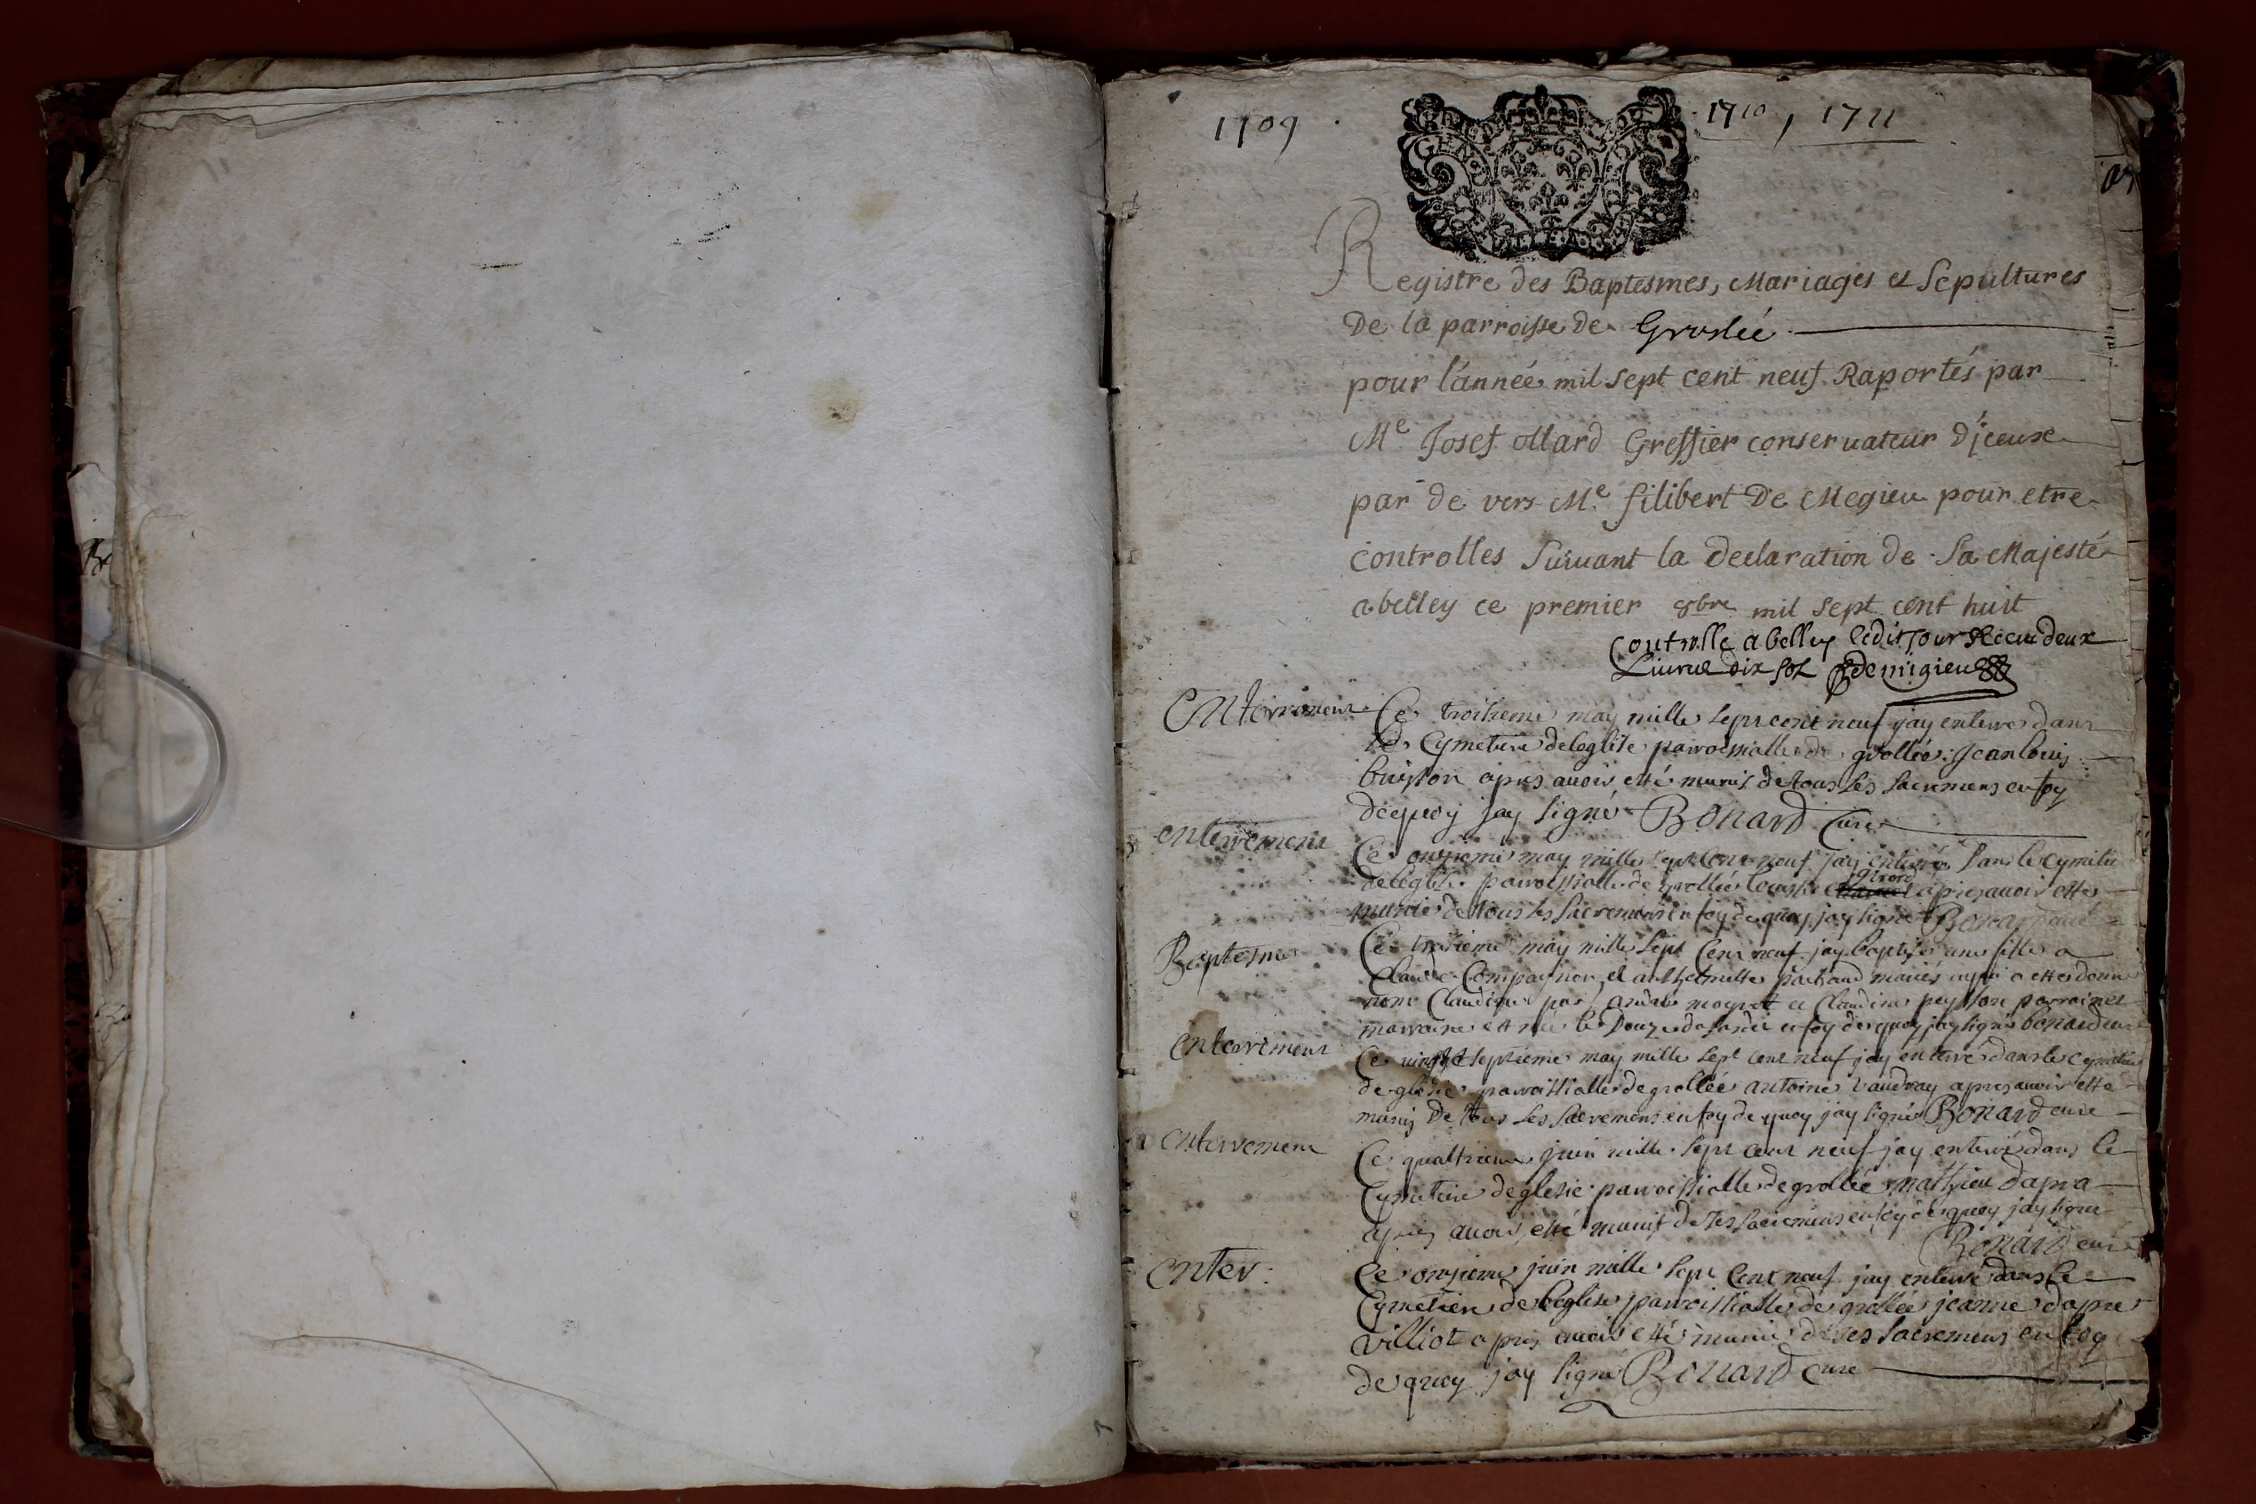 1709 . 1710, 1711
GENER
Registre des Baptesmes, Mariages et Sepultures
De la parroisse de Groslée
pour l'année mil sept cent neuf Raportés par
Me Josef ollard Greffier conseruateur d'jceux
par de vers Me filibert De Megieu pour etre
controlles Suiuant la declaration de Sa Majesté
a belley ce premier 8bre mil sept cent huit
Controlle a belley ledit Jour Receu deux
Liures dix sol demigieu
Enterrement Ce troisieme may mille sept cent neuf jay enterré dans
le Cymetiere de leglise parroissialle de grollée Jean louis
buisson apres auoir esté munis de tous les sacremens en foy
dequoy jay signé Bonard Curé
enterrement Ce onzieme may mille sept cent neuf jay enterré dans le cymetie
de leglise parroissialle de grollée apres auoir esté
munie de tous les sacremens en foy de quoy jay signé Bonard curé
Baptesme Ce troisieme may mille sept Cent neuf jay baptisé une fille a
Claude Compagnon et anthelmette pachoud mariés a qui a esté donné
nom Claudine par moyret et Claudine peysson parrain et
marraine est née le douze en foy de quoy jay signé bonard curé
enterrement Ce vingt septieme may mille sept cent neuf jay enterré dans le cymetiere
de glesie parroissialle de grollée antoine vaudray apres auoir esté
munis de tous les sacremens en foy de quoy jay signé Bonard curé
enterrement Ce quattrieme juin mille sept cent neuf jay enterré dans le
Cymetiere de glesie parroissialle de grollée mathieu dapra
apres auoir esté munis de ses sacremens en foy de quoy jay signé
Bonard curé
enter: Ce onzieme juin mille sept Cent neuf jay enterré dans le
Cymetiere de leglise parroissialle de grollée jeanne dapra
villiot apres auoir esté munie de ses sacremens en foy
de quoy jay signé Bonard Curé